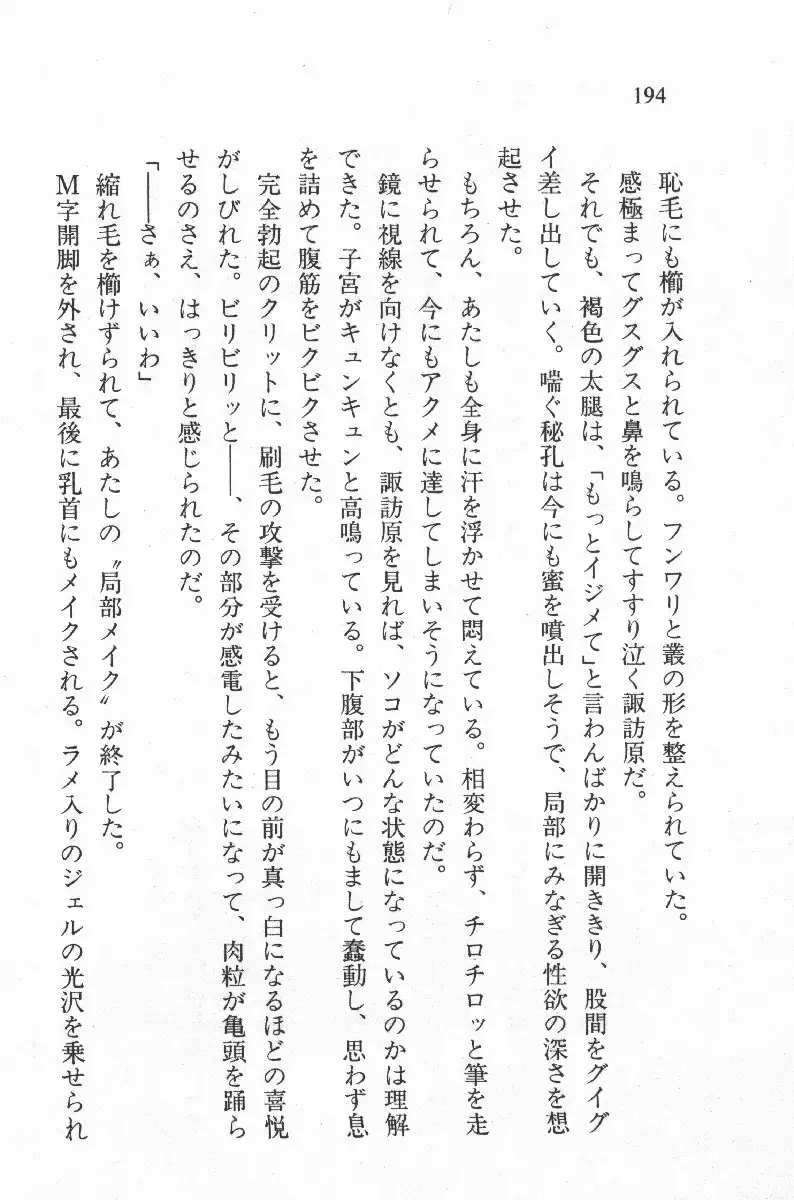 194
恥毛にも櫛が入れられている。フンワリと叢の形を整えられていた。
感極まってグスグスと鼻を鳴らしてすすり泣く諏訪原だ。
それでも、褐色の太腿は、「もっとイジメて」と言わんばかりに開ききり、股間をグイグ
イ差し出していく。喘ぐ秘孔は今にも蜜を噴出しそうで、局部にみなぎる性欲の深さを想
起させた。
もちろん、あたしも全身に汗を浮かせて悶えている。相変わらず、チロチロッと筆を走
らせられて、今にもアクメに達してしまいそうになっていたのだ。
鏡に視線を向けなくとも、諏訪原を見れば、ソコがどんな状態になっているのかは理解
できた。子宮がキュンキュンと高鳴っている。下腹部がいつにもまして蠢動し、思わず息
を詰めて腹筋をビクビクさせた。
完全勃起のクリットに、刷毛の攻撃を受けると、もう目の前が真っ白になるほどの喜悦
がしびれた。ビリビリッと――、その部分が感電したみたいになって、肉粒が亀頭を踊ら
せるのさえ、はっきりと感じられたのだ。
「――さぁ、いいわ」
縮れ毛を櫛けずられて、あたしの〝局部メイク〟が終了した。
Ｍ字開脚を外され、最後に乳首にもメイクされる。ラメ入りのジェルの光沢を乗せられ